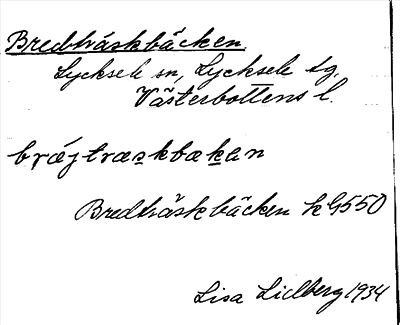 Bredträskbäcken
Lycksele sn, Lycksele tg,
Västerbottens l.
bræjtræskbækan
Bredträskbäcken k G550
Lisa Lidberg 1934